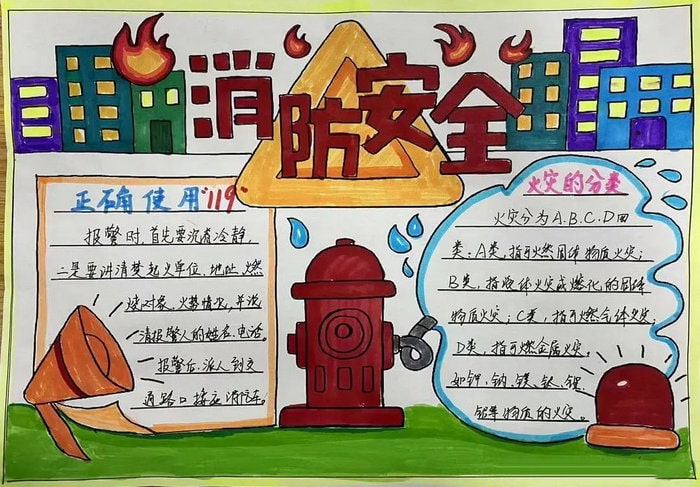 消防安全
正确使用"119"
报警时,首先要沉着冷静,
二是要讲清楚起火单位、地址、燃
烧对象、火势情况,并说
清报警人的姓名、电话。
报警后,派人到交
通路口接应消防车。
火灾的分类
火灾分为A.B.C.D四
类:A类,指可燃固体物质火灾;
B类,指液体火灾或熔化的固体
物质火灾;C类,指可燃气体火灾;
D类,指可燃金属火灾,
如钾、钠、镁、钛、锂
铝等物质的火灾。